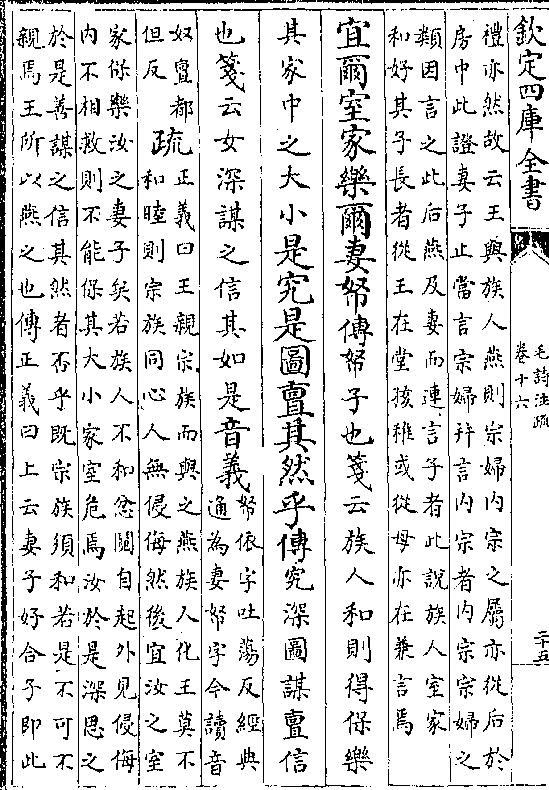 欽定四庫全書
毛詩注疏
卷十六
二十五
禮亦然故云王與族人燕則宗婦內宗之屬亦從后於
房中此證妻子止當言宗婦并言內宗者內宗宗婦之
類因言之此后燕及妻而連言子者此說族人室家
和好其子長者從王在堂孩稚或從母亦在兼言焉
宜爾室家樂爾妻帑傳帑子也箋云族人和則得保樂
其家中之大小是究是圖亶其然乎傳究深圖謀亶信
也箋云女深謀之信其如是音義帑依字吐蕩反經典
通為妻帑字今讀音
奴亶都
但反
疏正義曰王親宗族而與之燕族人化王莫不
和睦則宗族同心人無侵侮然後宜汝之室
家保樂汝之妻子矣若族人不和忿鬩自起外見侵侮
內不相救則不能保其大小家室危焉汝於是深思之
於是善謀之信其然者否乎既宗族須和若是不可不
親焉王所以燕之也傳正義曰上云妻子好合子即此